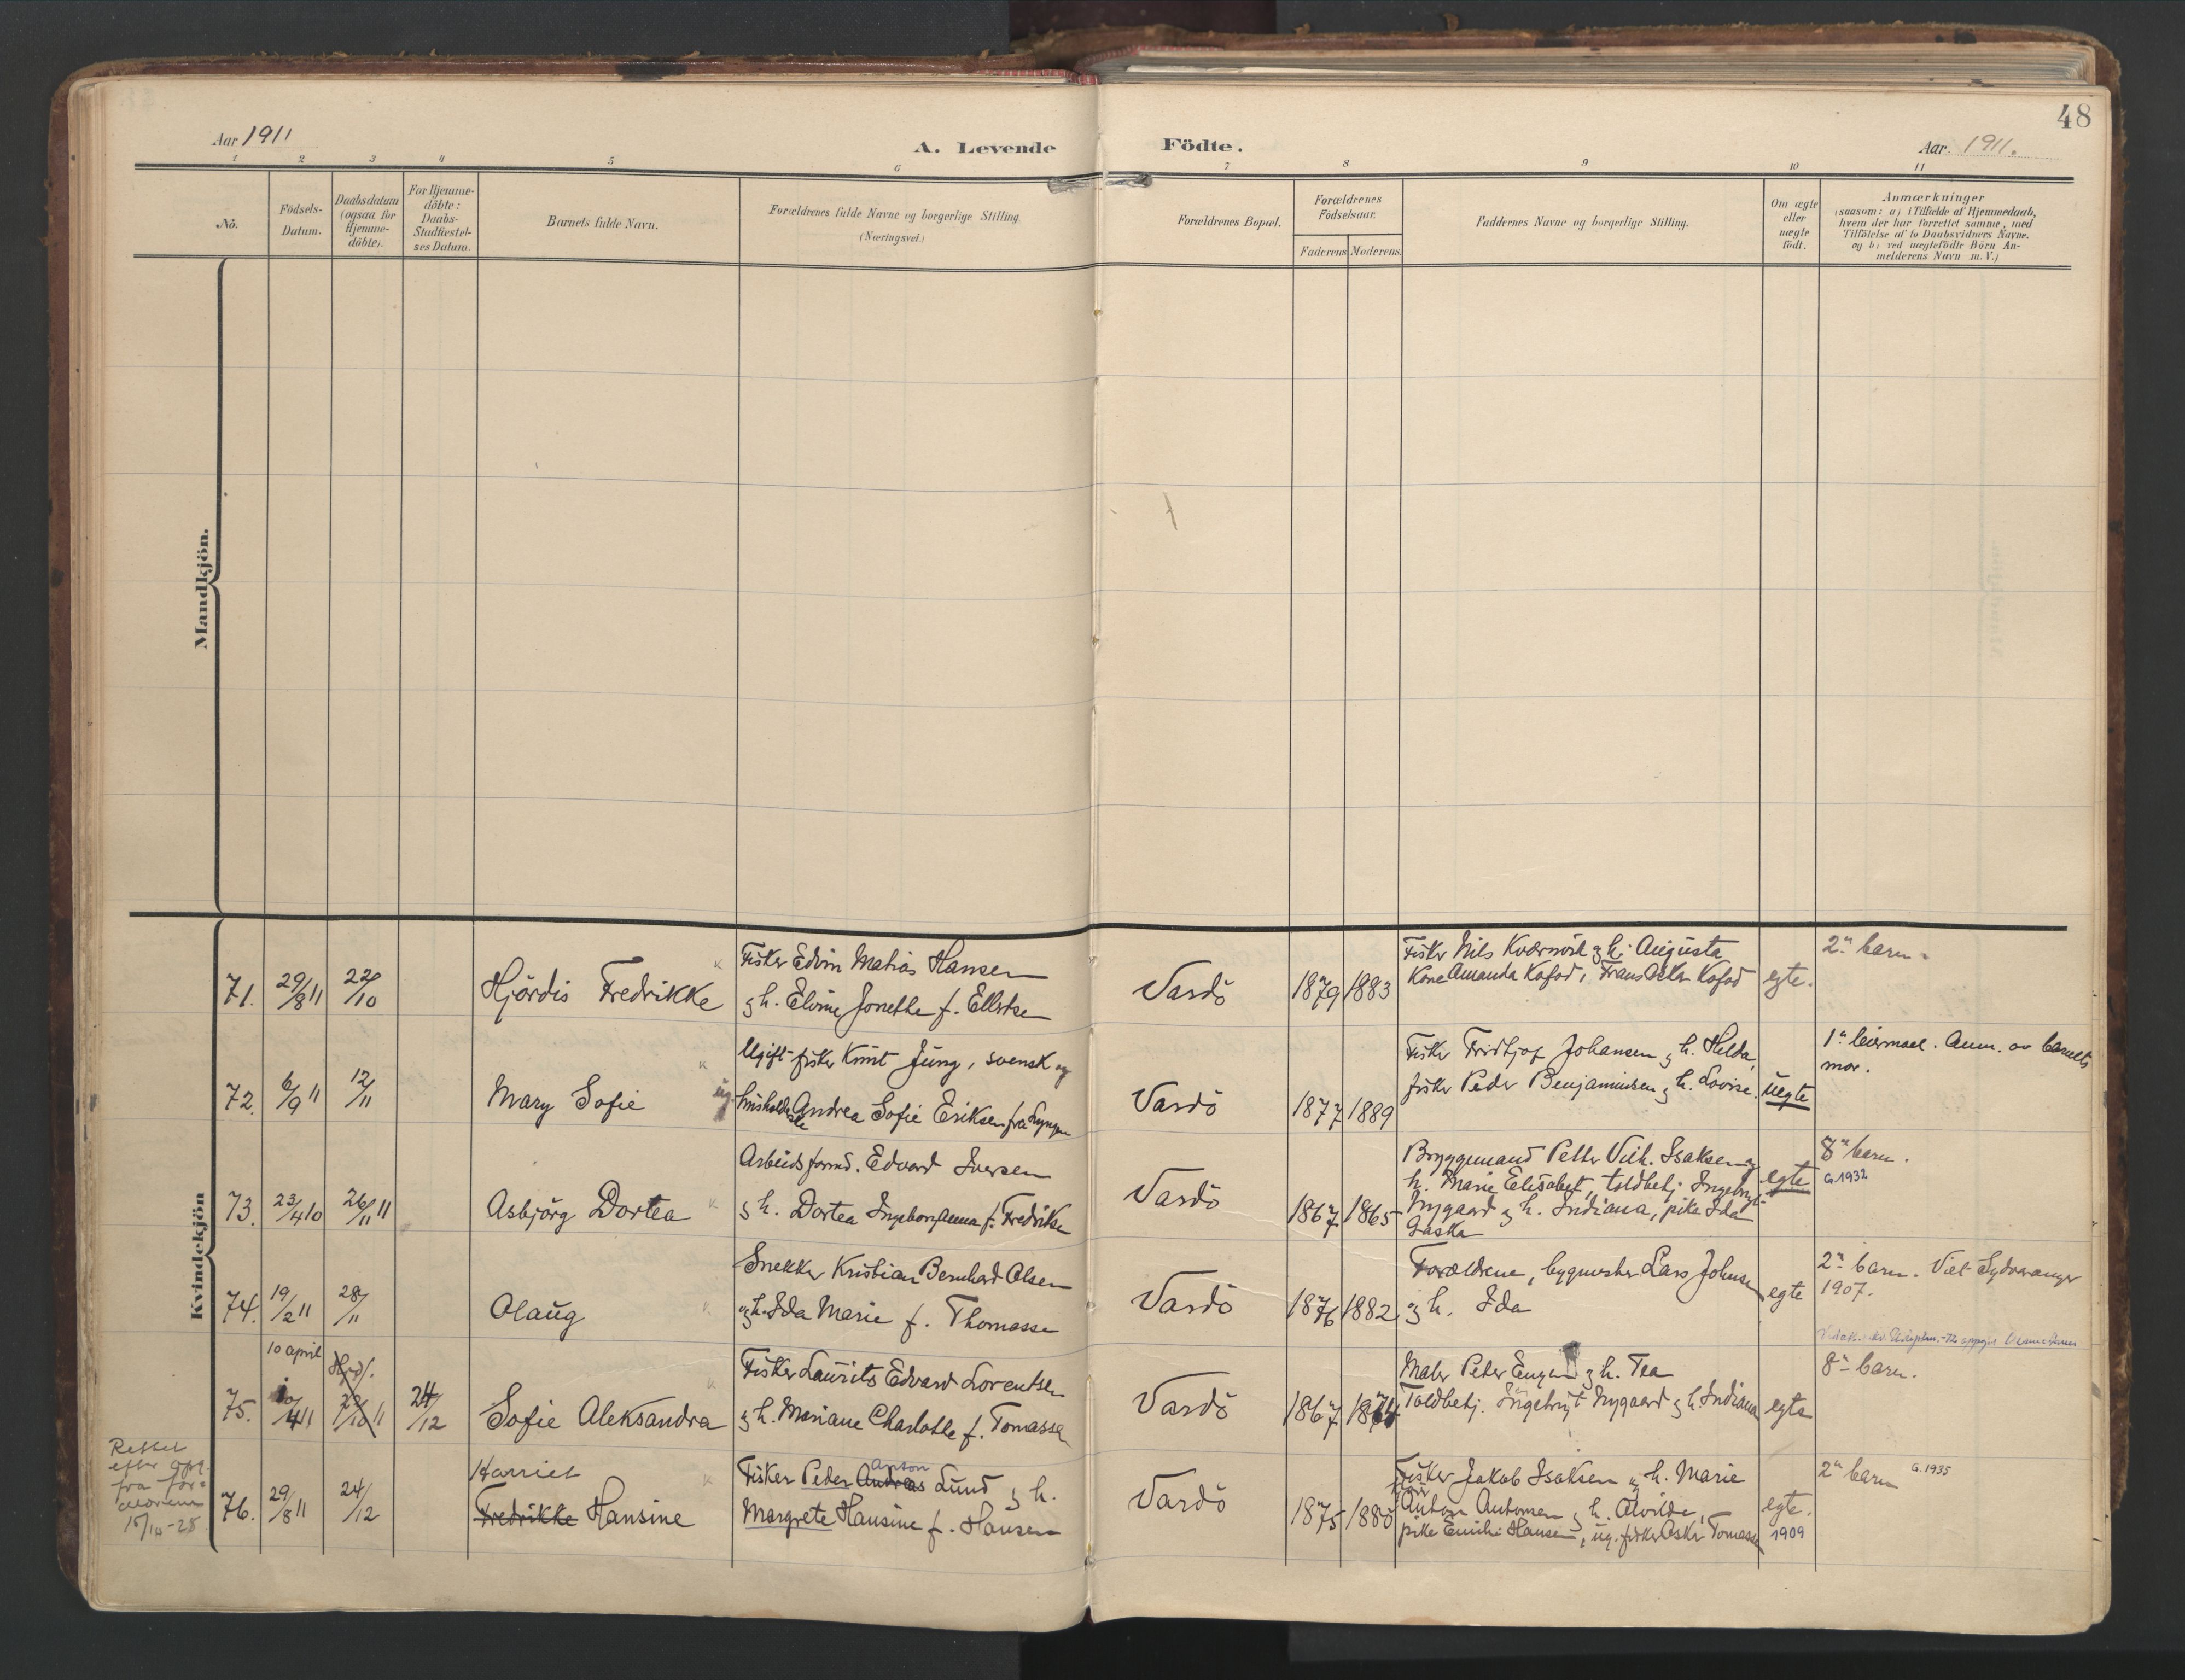 48
Aar 1911
A. Levende Födte.
Aar. 1911.
1 2 3 4 5 6 7 8 9 10 11
No.
Födsels-
Datum.
Daabsdatum
(ogsaa for
Hjemme-
döbte).
For Hjemme-
döbte:
Daabs-
Stadfæstel-
ses Datum.
Barnets fulde Navn.
Forældrenes fulde Navne og borgerlige Stilling
(Næringsvei.)
Forældrenes Bopæl.
Forældrenes
Födselsaar.
Faderens Moderens
Faddernes Navne og borgerlige Stilling.
Om ægte
eller
uægte
födt.
Anmærkninger
(saasom: a) i Tilfælde af Hjemmedaab,
hvem der har forrettet samme, med
Tilföielse af to Daabsvidners Navne.
og b) ved uægtefödte Börn An-
melderens Navn m. V.)
Mandkjön.
Kvindekjön
71. 29/8 11 22/10
Hjördis Fredrikke
Fisker Edvin Matias Hansen
og h. Elvine Jonette f. Ellertsen
Vardö 1879 1883
Fisker Nils og h. Augusta
Kone Amanda Kofod, Frans Oskar Kofod
egte.
2n barn.
72. 6/9 11 12/11
Mary Sofie
Ugift fisker Knut Jung, svensk og
ug. Andrea Sofie Eriksen fra Lyngen
Vardö 1877 1889
Fisker Fridtjof Johansen og h. Hilda,
fisker Peder Benjaminsen og h. Lovise.
uegte
1n leiermaal. Anm. av barnets
mor.
73. 23/4 10 26/11 11
Asbjörg Dortea
Arbeidsformd. Edvard Iversen
og h. Dortea Ingeborg Anna f. Fredriksen
Vardö 1867 1865
Bryggemand Petter Vilh. Isaksen og
h. Marie Elisabet, toldbetj. Ingebrigt
Nygaard og h. Indiana, pike Ida
Gaska
egte
8n barn.
G. 1932
74. 19/2 11 28/11
Olaug
Snekker Kristian Bernhard Olsen
og h. Ida Marie f. Thomassen
Vardö 1876 1882
Forældrene, bygmester Lars Johnsen
og h. Ida
egte
2n barn. Viet Sydvaranger
1907.
10 april
75. 10/4 11 24/12
Sofie Aleksandra
Fisker Laurits Edvard Lorentsen
og h. Mariane Charlotte f. Tomassen
Vardö 1867 1871
Maler Peter Eugen og h. Tea
Toldbetj. Ingebrigt Nygaard og h. Indiana
egte
8n barn.
Rettet
efter opg.
fra for-
ældrene
15/10-28.
76. 29/8 11 24/12
Harriet
Fredrikke Hansine
Anton
Fisker Peder Andreas Lund og h.
Margrete Hansine f. Hansen
Vardö 1875 1880
Fisker Jakob Isaksen og h. Marie
Anton Antonsen og h. Alvilde,
pike Emilie Hansen, ug. fisker Oskar Tomassen
egte.
1909
2n barn G. 1935